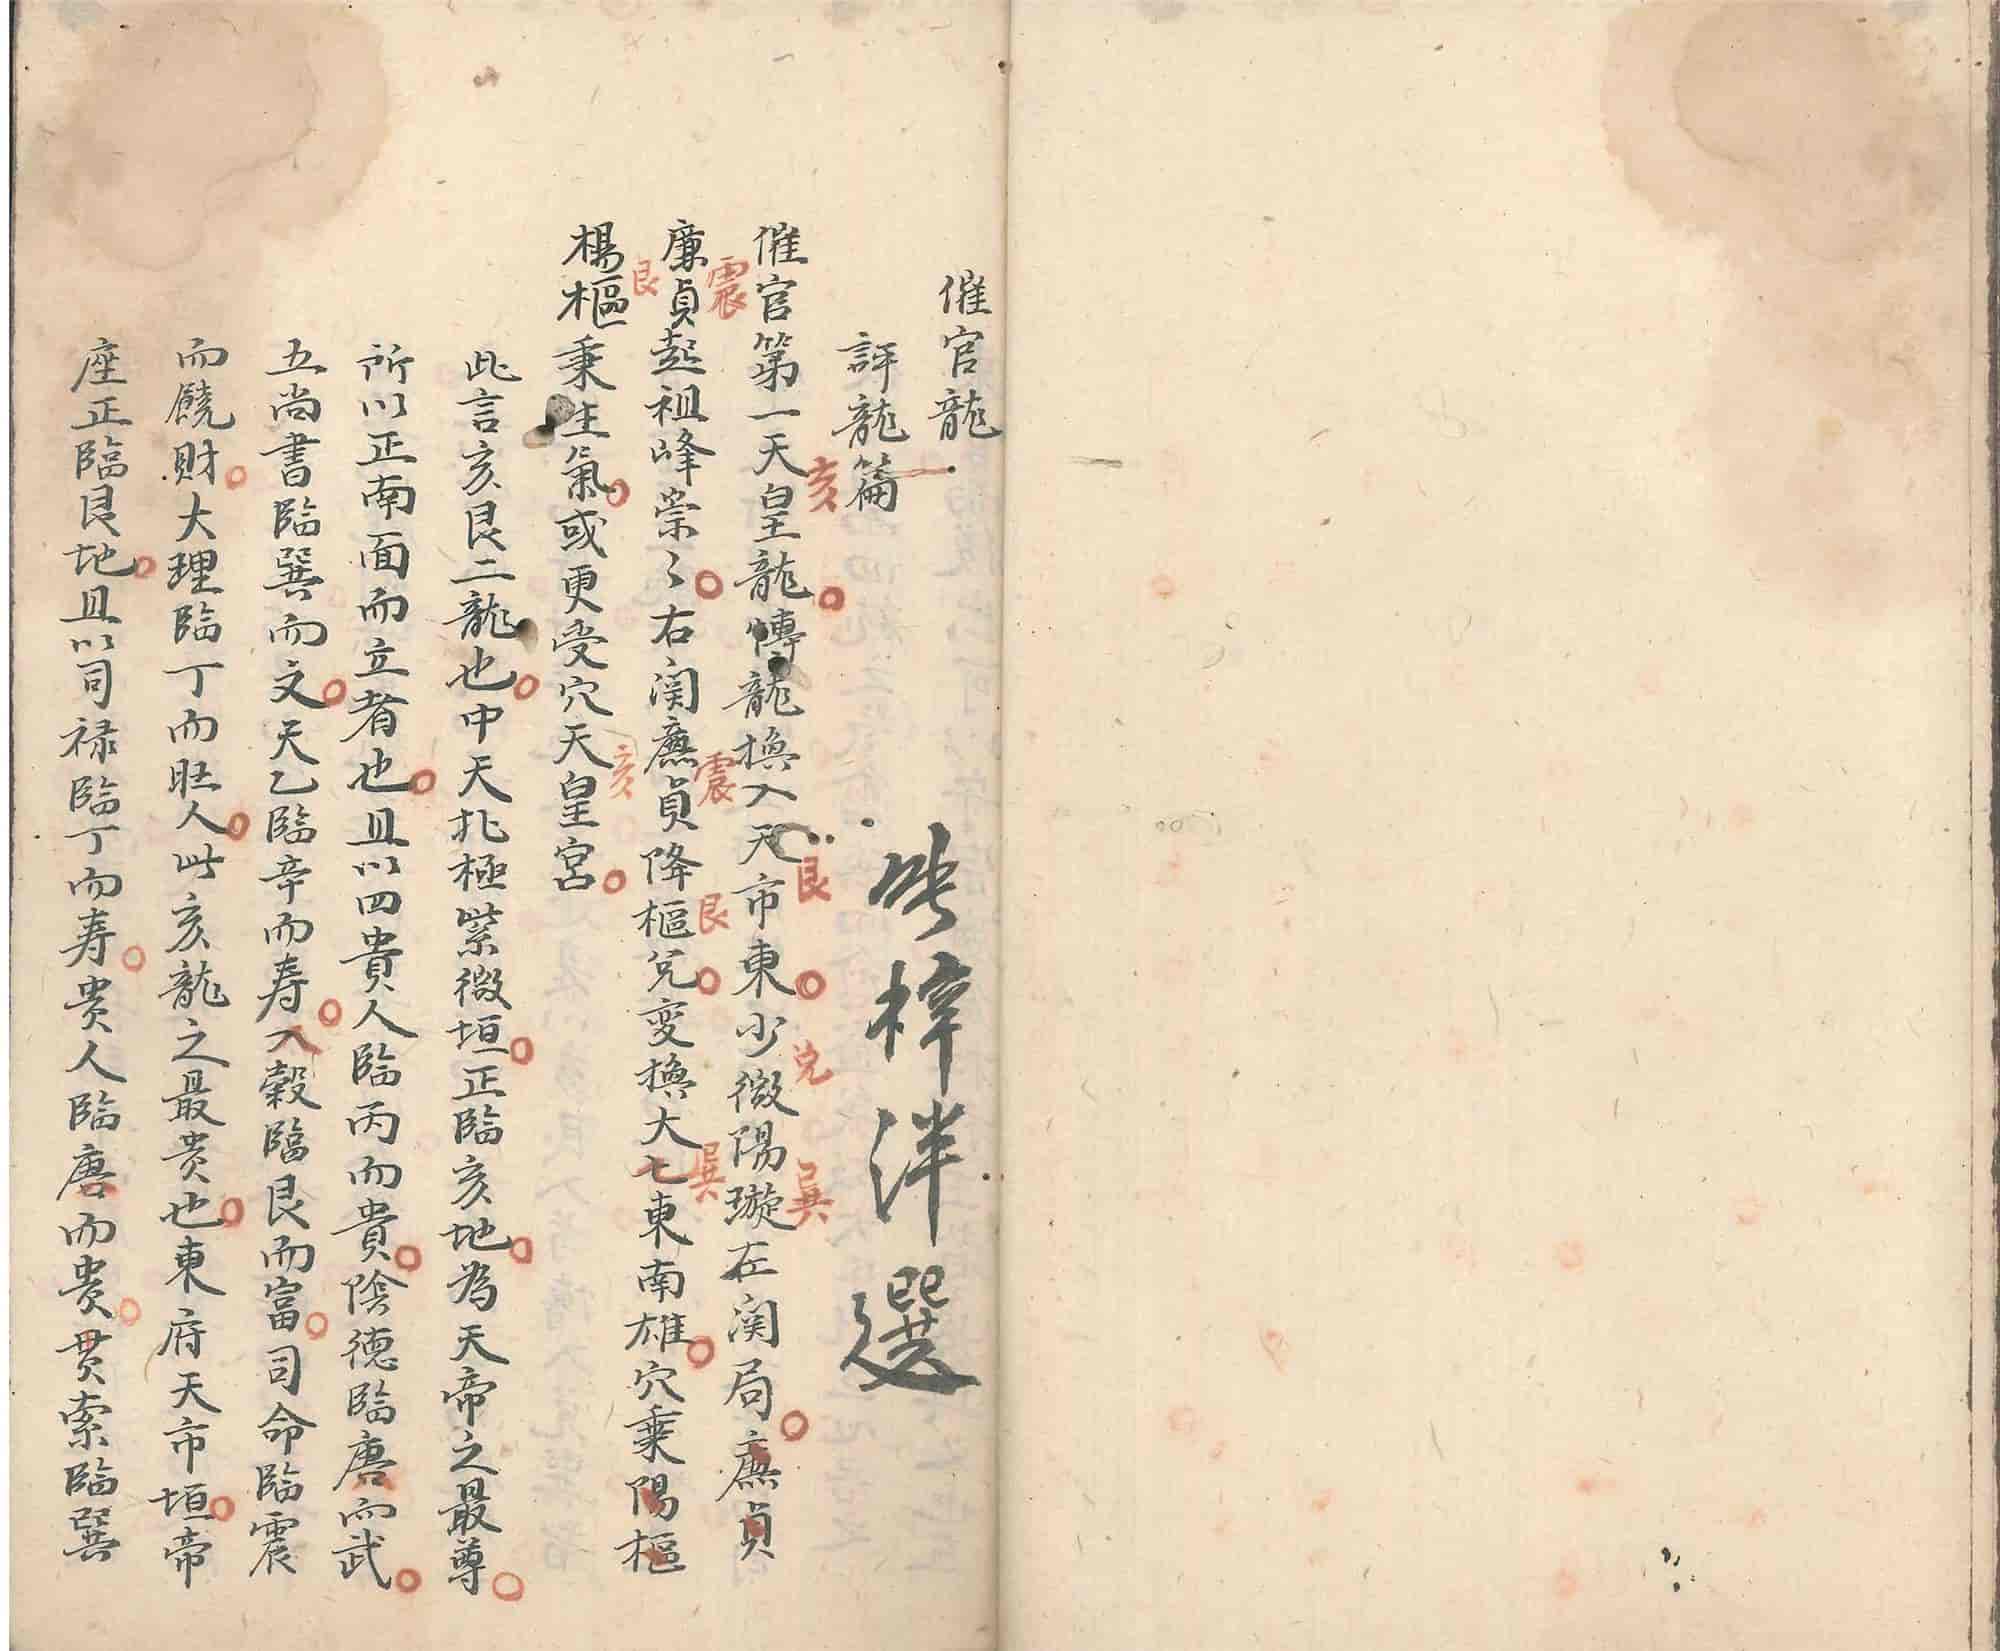 催官龍
評龍篇
梓泮選
催官第一天皇龍傳龍換入天市東少微陽璇在関局廉貞
亥
艮
兌
巽
廉貞起祖峰崇々右関廉貞降樞兌变換大七東南雄穴乗陽樞
震
震
艮
巽
楊樞乗生氣或更受穴天皇宮
艮
亥
此言亥艮二龍也中天北極紫微垣正臨亥地為天帝之最尊
所以正南面而立者也且以四貴人臨丙而貴陰德臨唐而武
五尚書臨巽而文天乙臨辛而寿入穀臨艮而富司命臨震
而饒財大理臨丁而旺人此亥龍之最贵也東府天市垣帝
座正臨艮地且以司禄臨丁而寿贵人臨唐而贵贯索臨巽